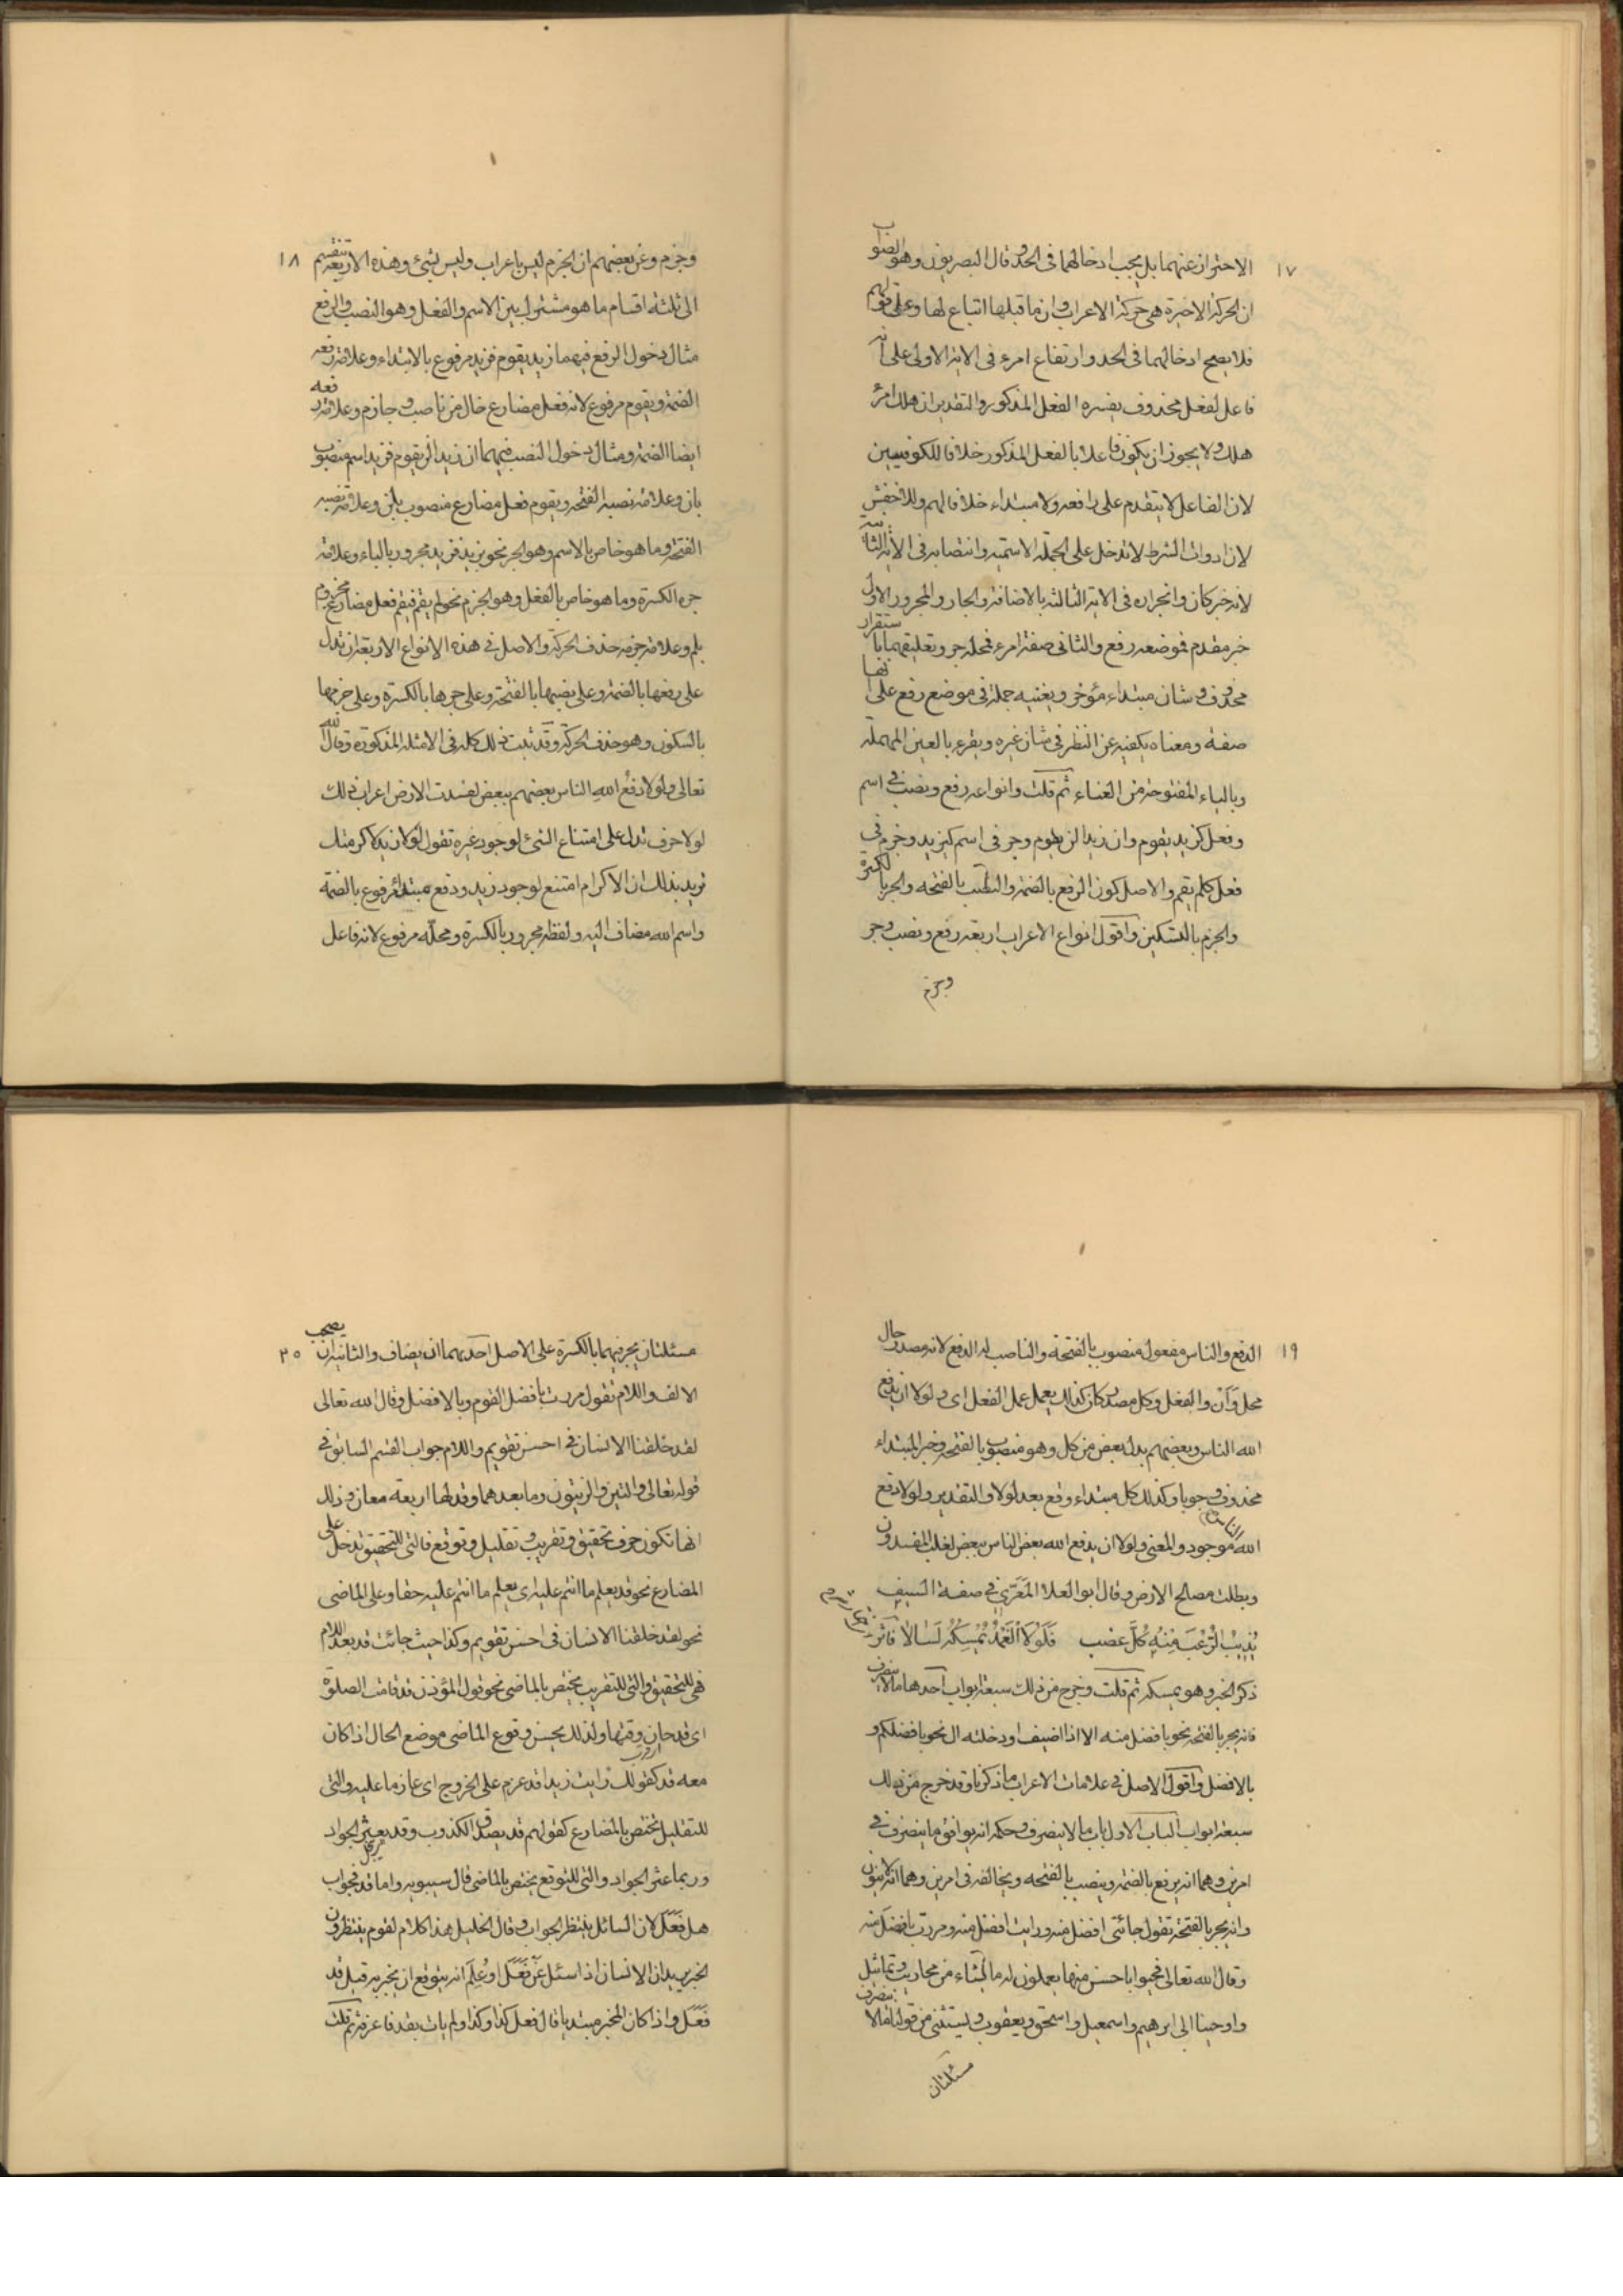 ١٧
الاحتراز عنهما بل يجب ادخالهما فى الحد وقال البصريون وهو الصواب
ان الحركة الاخيرة هى حركة الاعراب وان ما قبلها اتباع لها وعلى قولهم
فلا يصح ادخالهما فى الحد وارتفاع امرء فى الاية الاولى على انه
فاعل لفعل محذوف يفسره الفعل المذكور والتقدير ان هلك امرؤ
هلك ولا يجوز ان يكون فاعلا بالفعل المذكور خلافا للكوفيين
لان الفاعل لا يتقدم على رافعه ولا مبتداء خلافا لهم وللاخفش
لان ادوات الشرط لا تدخل على الجملة الاسمية وانتصابه فى الاية الثانية
لانه خبر كان وانجراره فى الاية الثالثة بالاضافة والجار والمجرور الاول
خبر مقدم فموضعه رفع والثانى صفة امرء فمحله جر وتعليقهما باستقرار
محذوف وشان مبتداء مؤخر ويغنيه جملة فى موضع رفع على انها
صفة ومعناه يكفيه عن النظر فى شان غيره ويقرء بالعين المهملة
وبالياء المفتوحة من العناء ثم قلت وانواعه رفع ونصب فى اسم
وفعل كزيد يقوم وان زيدا لن يقوم وجر فى اسم كبزيد وجزم فى
فعل كلم يقم والاصل كون الرفع بالضمة والنصب بالفتحة والجر بالكسرة
والجزم بالتسكين واقول انواع الاعراب اربعة رفع ونصب وجر
وجزم
١٨
وجزم وعن بعضهم ان الجزم ليس باعراب وليس بشئ وهذه الاربعة تنقسم
الى ثلثة اقسام ما هو مشترك بين الاسم والفعل وهو النصب والرفع
مثال دخول الرفع فيهما زيد يقوم فزيد مرفوع بالابتداء وعلامة رفعه
الضمة ويقوم مرفوع لانه فعل مضارع خال من ناصب وجازم وعلامة رفعه
ايضا الضمة ومثال دخول النصب فيهما ان زيدا لن يقوم فزيد اسم منصوب
بان وعلامة نصبه الفتحة ويقوم فعل مضارع منصوب بلن وعلامة نصبه
الفتحة وما هو خاص بالاسم وهو الجر نحو بزيد فزيد مجرور بالباء وعلامة
جره الكسرة وما هو خاص بالفعل وهو الجزم نحو لم يقم فيقم فعل مضارع مجزوم
بلم وعلامة جزمه حذف الحركة والاصل فى هذه الانواع الاربعة ان تدل
على رفعها بالضمة وعلى نصبها بالفتحة وعلى جرها بالكسرة وعلى جزمها
بالسكون وهو حذف الحركة وقد تبت ذلك كله فى الامثلة المذكورة وقال الله
تعالى ولولا دفع الله الناس بعضهم ببعض لفسدت الارض اعراب ذلك
لولا حرف تدل على امتناع الشئ لوجود غيره تقول لولا زيد لاكرمتك
تريد بذلك ان الاكرام امتنع لوجود زيد ودفع مبتداء مرفوع بالضمة
واسم الله مضاف اليه ولفظه مجرور بالكسرة ومحله مرفوع لانه فاعل
١٩
الدفع والناس مفعول منصوب بالفتحة والناصب له الدفع لانه مصدر حال
محل وأن والفعل وكل مصدر كان كذلك يعمل عمل الفعل اى ولولا ان يدفع
الله الناس وبعضهم بدل بعض من كل وهو منصوب بالفتحة وخبر المبتداء
محذوف وجوبا وكذلك كل مبتداء وقع بعد لولا والتقدير ولولا دفع
الله الناس موجود والمعنى ولولا ان يدفع الله بعض الناس ببعض لغلب المفسدون
وبطلت مصالح الارض وقال ابو العلاء المعرى فى صفة السيف
يذيب الرعب منه كل عضب فلولا الغمد يمسكه لسالا فاثر
ذكر الخبر وهو يمسكه ثم قلت وخرج من ذلك سبعة ابواب احدها ما لا ينصرف
فانه يجر بالفتحة نحو بافضل منه الا اذا اضيف او دخلته ال نحو بافضلكم و
بالافضل واقول الاصل فى علامات الاعراب ما ذكرنا وقد خرج من ذلك
سبعة ابواب الباب الاول باب ما لا ينصرف وحكمه انه يوافق ما ينصرف فى
امرين وهما انه يرفع بالضمة وينصب بالفتحة ويخالفه فى امرين وهما انه لا ينون
وانه يجر بالفتحة تقول جائنى افضل منه ورايت افضل منه ومررت بافضل منه
وقال الله تعالى فحيوا باحسن منها يعملون له ما يشاء من محاريب وتماثيل
واوحينا الى ابرهيم واسمعيل واسحق ويعقوب ويستثنى من قولنا ما لا ينصرف
مسئلتان
٢٠
مسئلتان يجر فيهما بالكسرة على الاصل احدهما ان يضاف والثانية ان يصحب
الالف واللام تقول مررت بافضل القوم وبالافضل وقال الله تعالى
لقد خلقنا الانسان فى احسن تقويم واللام جواب القسم السابق فى
قوله تعالى والتين والزيتون وما بعدهما وقد لها اربعة معان وذلك
انها تكون حرف تحقيق وتقريب وتقليل وتوقع فالتى للتحقيق تدخل على
المضارع نحو قد يعلم ما انتم عليه اى يعلم ما انتم عليه حقا وعلى الماضى
نحو لقد خلقنا الانسان فى احسن تقويم وكذا حيث جائت قد بعد اللام
فهى للتحقيق والتى للتقريب يختص بالماضى نحو قول المؤذن قد قامت الصلوة
اى قد حان وقتها ولذلك يحسن وقوع الماضى موضع الحال اذا كان
معه قد كقولك رايت زيدا قد عزم على الخروج اى عازما عليه والتى
للتقليل تختص بالمضارع كقولهم قد يصدق الكذوب وقد يعثر الجواد
وربما عثر الجواد والتى للتوقع يختص بالماضى قال سيبويه واما قد فجواب
هل فعل لان السائل ينتظر الجواب وقال الخليل هذا كلام لقوم ينتظرون
الخبر يريد ان الانسان اذا سئل عن فعل او علم انه يتوقع ان يخبر به قيل قد
فعل واذا كان المخبر مبتديا قال فعل كذا وكذا ولم يات بقد فاعرفه ثم قلت